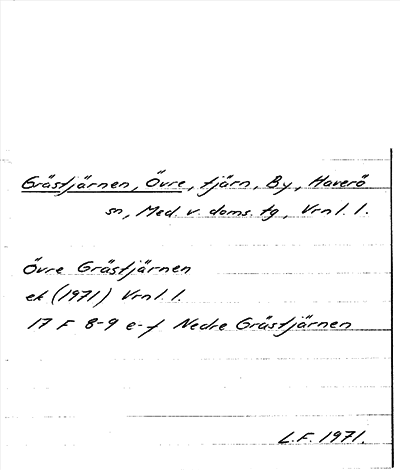 Grästjärnen, Övre, tjärn, By, Haverö
sn, Med. v. doms. tg, Vrnl. l.
Övre Grästjärnen
ek (1971) Vrnl. l.
17 F 8-9 e-f Nedre Grästjärnen
L.F. 1971.